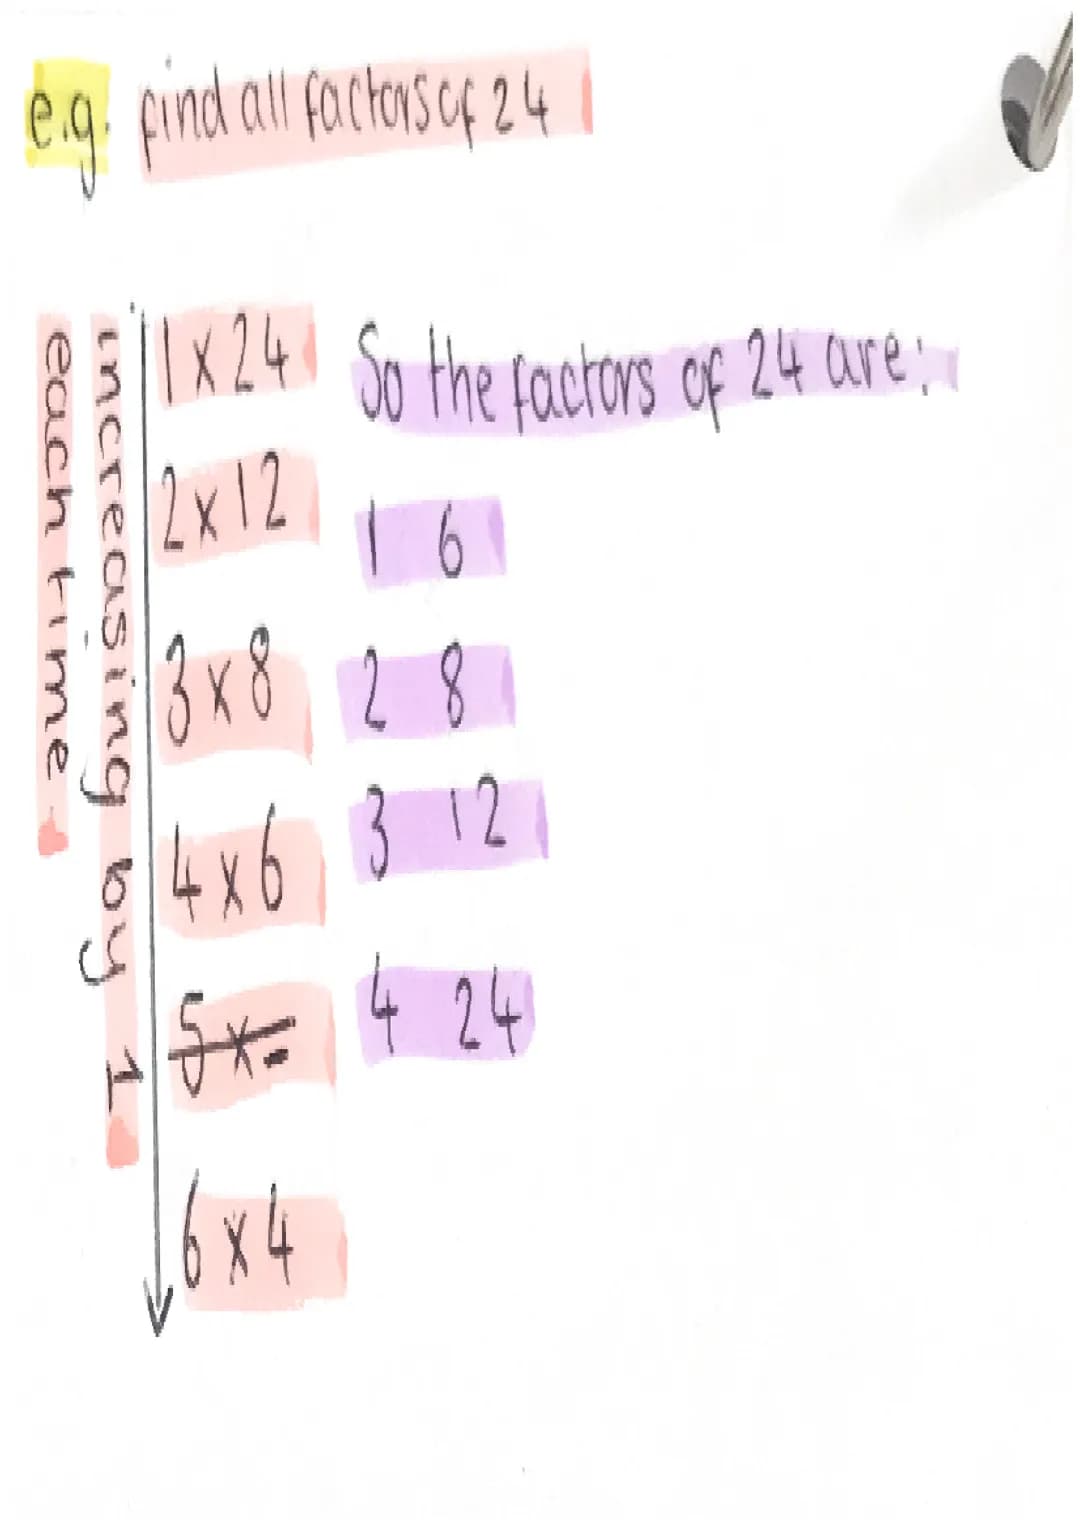 e.g. find all factors of 24
increasing by 1
each time.
1 x 24
2 x 12
3 x 8
4 x 6
5 x -
6 x 4
So the factors of 24 are:
1 6
2 8
3 12
4 24